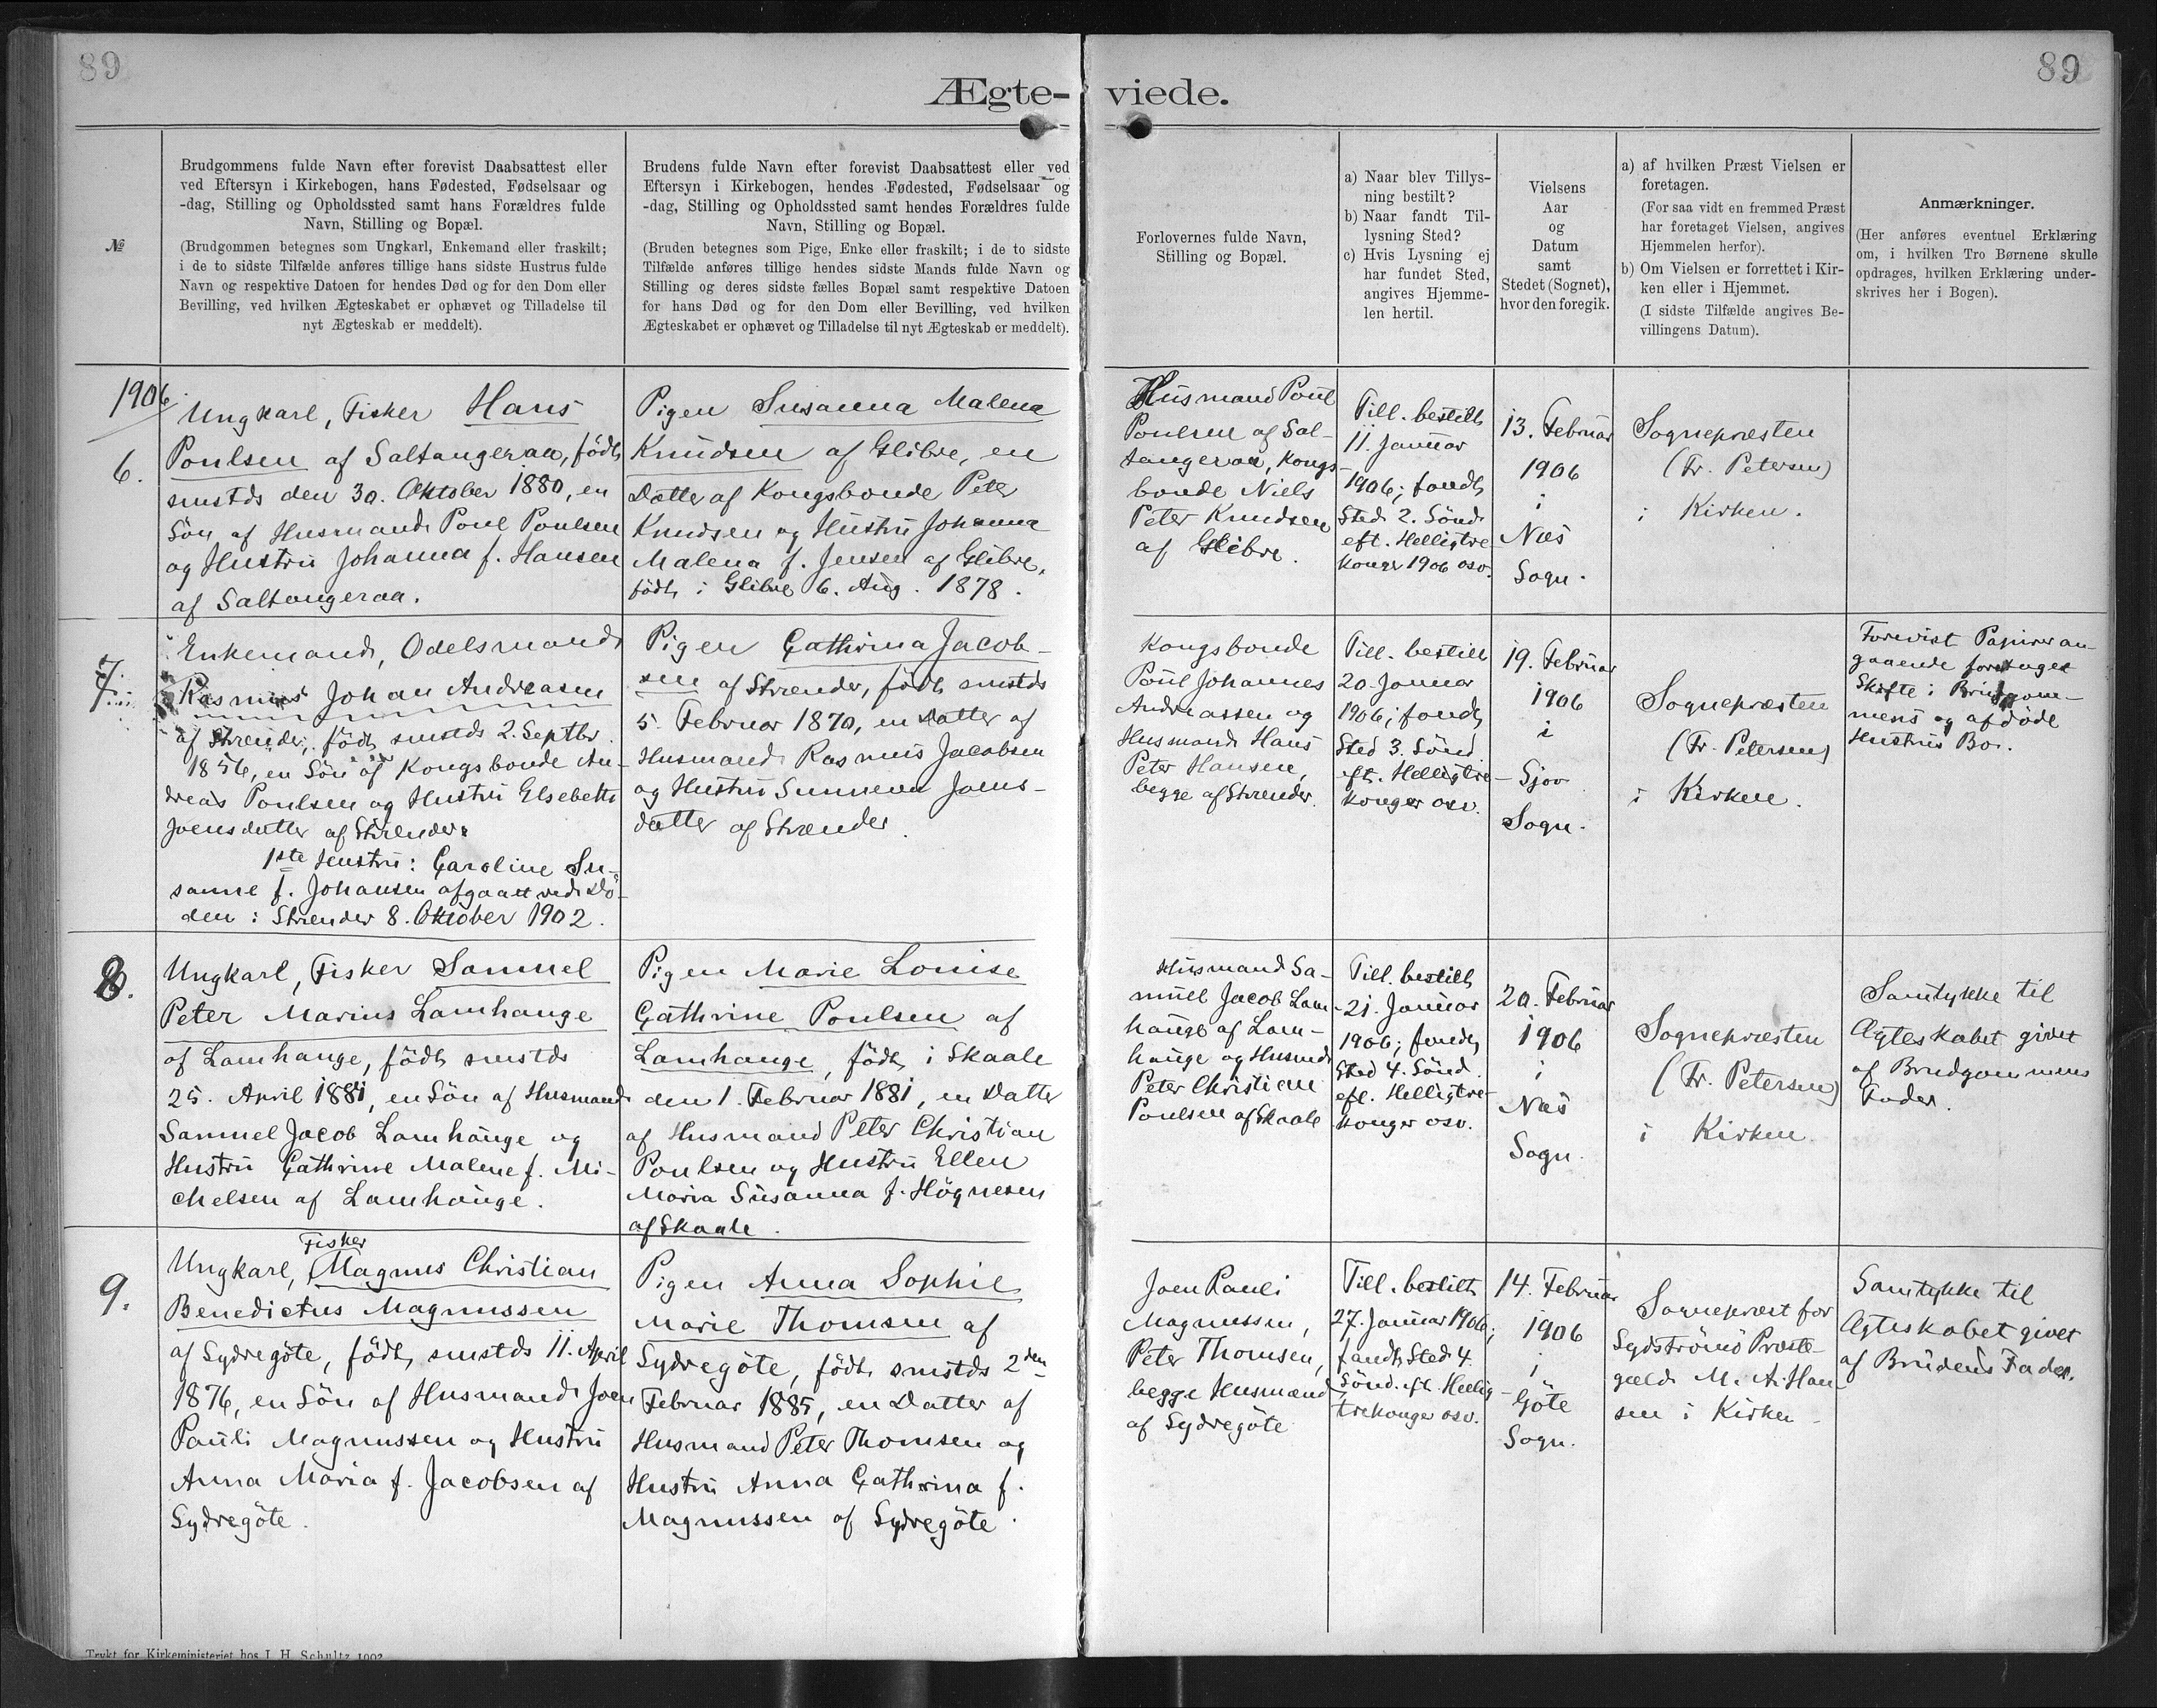 89
89
Ægte-
viede.
№
Brudgommens fulde Navn efter forevist Daabsattest eller
ved Eftersyn i Kirkebogen, hans Fødested, Fødselsaar og
-dag, Stilling og Opholdssted samt hans Forældres fulde
Navn, Stilling og Bopæl.
(Brudgommen betegnes som Ungkarl, Enkemand eller fraskilt;
i de to sidste Tilfælde anføres tillige hans sidste Hustrus fulde
Navn og respektive Datoen for hendes Død og for den Dom eller
Bevilling, ved hvilken Ægteskabet er ophævet og Tilladelse til
nyt Ægteskab er meddelt).
Brudens fulde Navn efter forevist Daabsattest eller ved
Eftersyn i Kirkebogen, hendes Fødested, Fødselsaar og
-dag, Stilling og Opholdssted samt hendes Forældres fulde
Navn, Stilling og Bopæl.
(Bruden betegnes som Pige, Enke eller fraskilt; i de to sidste
Tilfælde anføres tillige hendes sidste Mands fulde Navn og
Stilling og deres sidste fælles Bopæl samt respektive Datoen
for hans Død og for den Dom eller Bevilling, ved hvilken
Ægteskabet er ophævet og Tilladelse til nyt Ægteskab er meddelt).
Forlovernes fulde Navn,
Stilling og Bopæl.
a) Naar blev Tillys-
ning bestilt?
b) Naar fandt Til-
lysning Sted?
c) Hvis Lysning ej
har fundet Sted,
angives Hjemme-
len hertil.
Vielsens
Aar
og
Datum
samt
Stedet (Sognet),
hvor den foregik.
a) af hvilken Præst Vielsen er
foretagen.
(For saa vidt en fremmed Præst
har foretaget Vielsen, angives
Hjemmelen herfor).
b) Om Vielsen er forrettet i Kir-
ken eller i Hjemmet.
(I sidste Tilfælde angives Be-
villingens Datum).
Anmærkninger.
(Her anføres eventuel Erklæring
om, i hvilken Tro Børnene skulle
opdrages, hvilken Erklæring under-
skrives her i Bogen).
1906
6.
Ungkarl, Fisker Hans
Poulsen af Saltangeraa, født
smstds den 30. Oktober 1880, en
Sön af Husmand Poul Poulsen
og Hustru Johanna f. Hansen
af Saltangeraa.
Pigen Susanna Malena
Knudsen af Glibre, en
Datter af Kongsbonde Peter
Knudsen og Hustru Johanna
Malena f. Jensen af Glibre,
födt i Glibre 6. Aug. 1878.
Husmand Poul
Poulsen af Sal-
tangeraa, Kongs-
bonde Niels
Peter Knudsen
af Glibre.
Till. bestilt
11. Januar
1906; fandt
Sted 2. Sönd.
eft. Helligtre-
konger 1906 osv.
13. Februar
1906
i
Næs
Sogn.
Sognepræsten
(Fr. Petersen)
i Kirken.
7.
Enkemand, Odelsmand
Rasmus Johan Andreasen
af Strender, födt smstds 2. Septbr.
1856, en Sön af Kongsbonde An-
dreas Poulsen og Hustru Elsebeth
Joensdatter af Strender.
1ste Hustru: Caroline Su-
sanne f. Johansen afgaaet ved Dö-
den i Strender 8. Oktober 1902.
Pigen Cathrina Jacob-
sen af Strender, födt smstds
5. Februar 1870, en Datter af
Husmand Rasmus Jacobsen
og Hustru Sunneva Joens-
datter af Strender.
Kongsbonde
Poul Johannes
Andreassen og
Husmand Hans
Peter Hansen,
begge af Strender.
Till. bestilt
20. Januar
1906; fandt
Sted 3. Sönd
eft. Helligtre-
konger osv.
19. Februar
1906
i
Sjov
Sogn.
Sognepræsten
(Fr. Petersen)
i Kirken.
Forevist Papirer an-
gaaende foretaget
Skifte i Brudgom-
mens og afdöde
Hustrus Bo.
8.
Ungkarl, Fisker Samuel
Peter Marius Lamhauge
af Lamhauge, födt smstds
25. April 1881, en Sön af Husmand
Samuel Jacob Lamhauge og
Hustru Cathrine Malene f. Mi-
chelsen af Lamhauge.
Pigen Marie Louise
Cathrine Poulsen af
Lamhauge, födt i Skaale
den 1. Februar 1881, en Datter
af Husmand Peter Christian
Poulsen og Hustru Ellen
Maria Susanna f. Högnesen
af Skaale.
Husmand Sa-
muel Jacob Lam-
hauge af Lam-
hauge og Husmd
Peter Christian
Poulsen af Skaale
Till. bestilt
21. Januar
1906; fandt
Sted 4. Sönd.
eft. Helligtre-
konger osv.
20. Februar
1906
i
Næs
Sogn.
Sognepræsten
(Fr. Petersen)
i Kirken.
Samtykke til
Ægteskabet givet
af Brudgommens
Fader.
9.
Fisker
Ungkarl, Magnus Christian
Benedictus Magnussen
af Sydregöte, födt smstds 11. April
1876, en Sön af Husmand Joen
Pauli Magnussen og Hustru
Anna Maria f. Jacobsen af
Sydregöte.
Pigen Anna Sophie
Marie Thomsen af
Sydregöte, födt smstds 2den
Februar 1885, en Datter af
Husmand Peter Thomsen og
Hustru Anna Cathrina f.
Magnussen af Sydregöte.
Joen Pauli
Magnussen,
Peter Thomsen,
begge Husmænd
af Sydregöte
Till. bestilt
27. Januar 1906;
fandt Sted 4.
Sönd. eft. Hellig-
trekonger osv.
14. Februar
1906
i
Göte
Sogn.
Sognepræst for
Sydströmö Præste-
gjeld M. A. Han-
sen i Kirken
Samtykke til
Ægteskabet givet
af Brudens Fader.
Trykt for Kirkeministeriet hos J. H. Schultz 1902